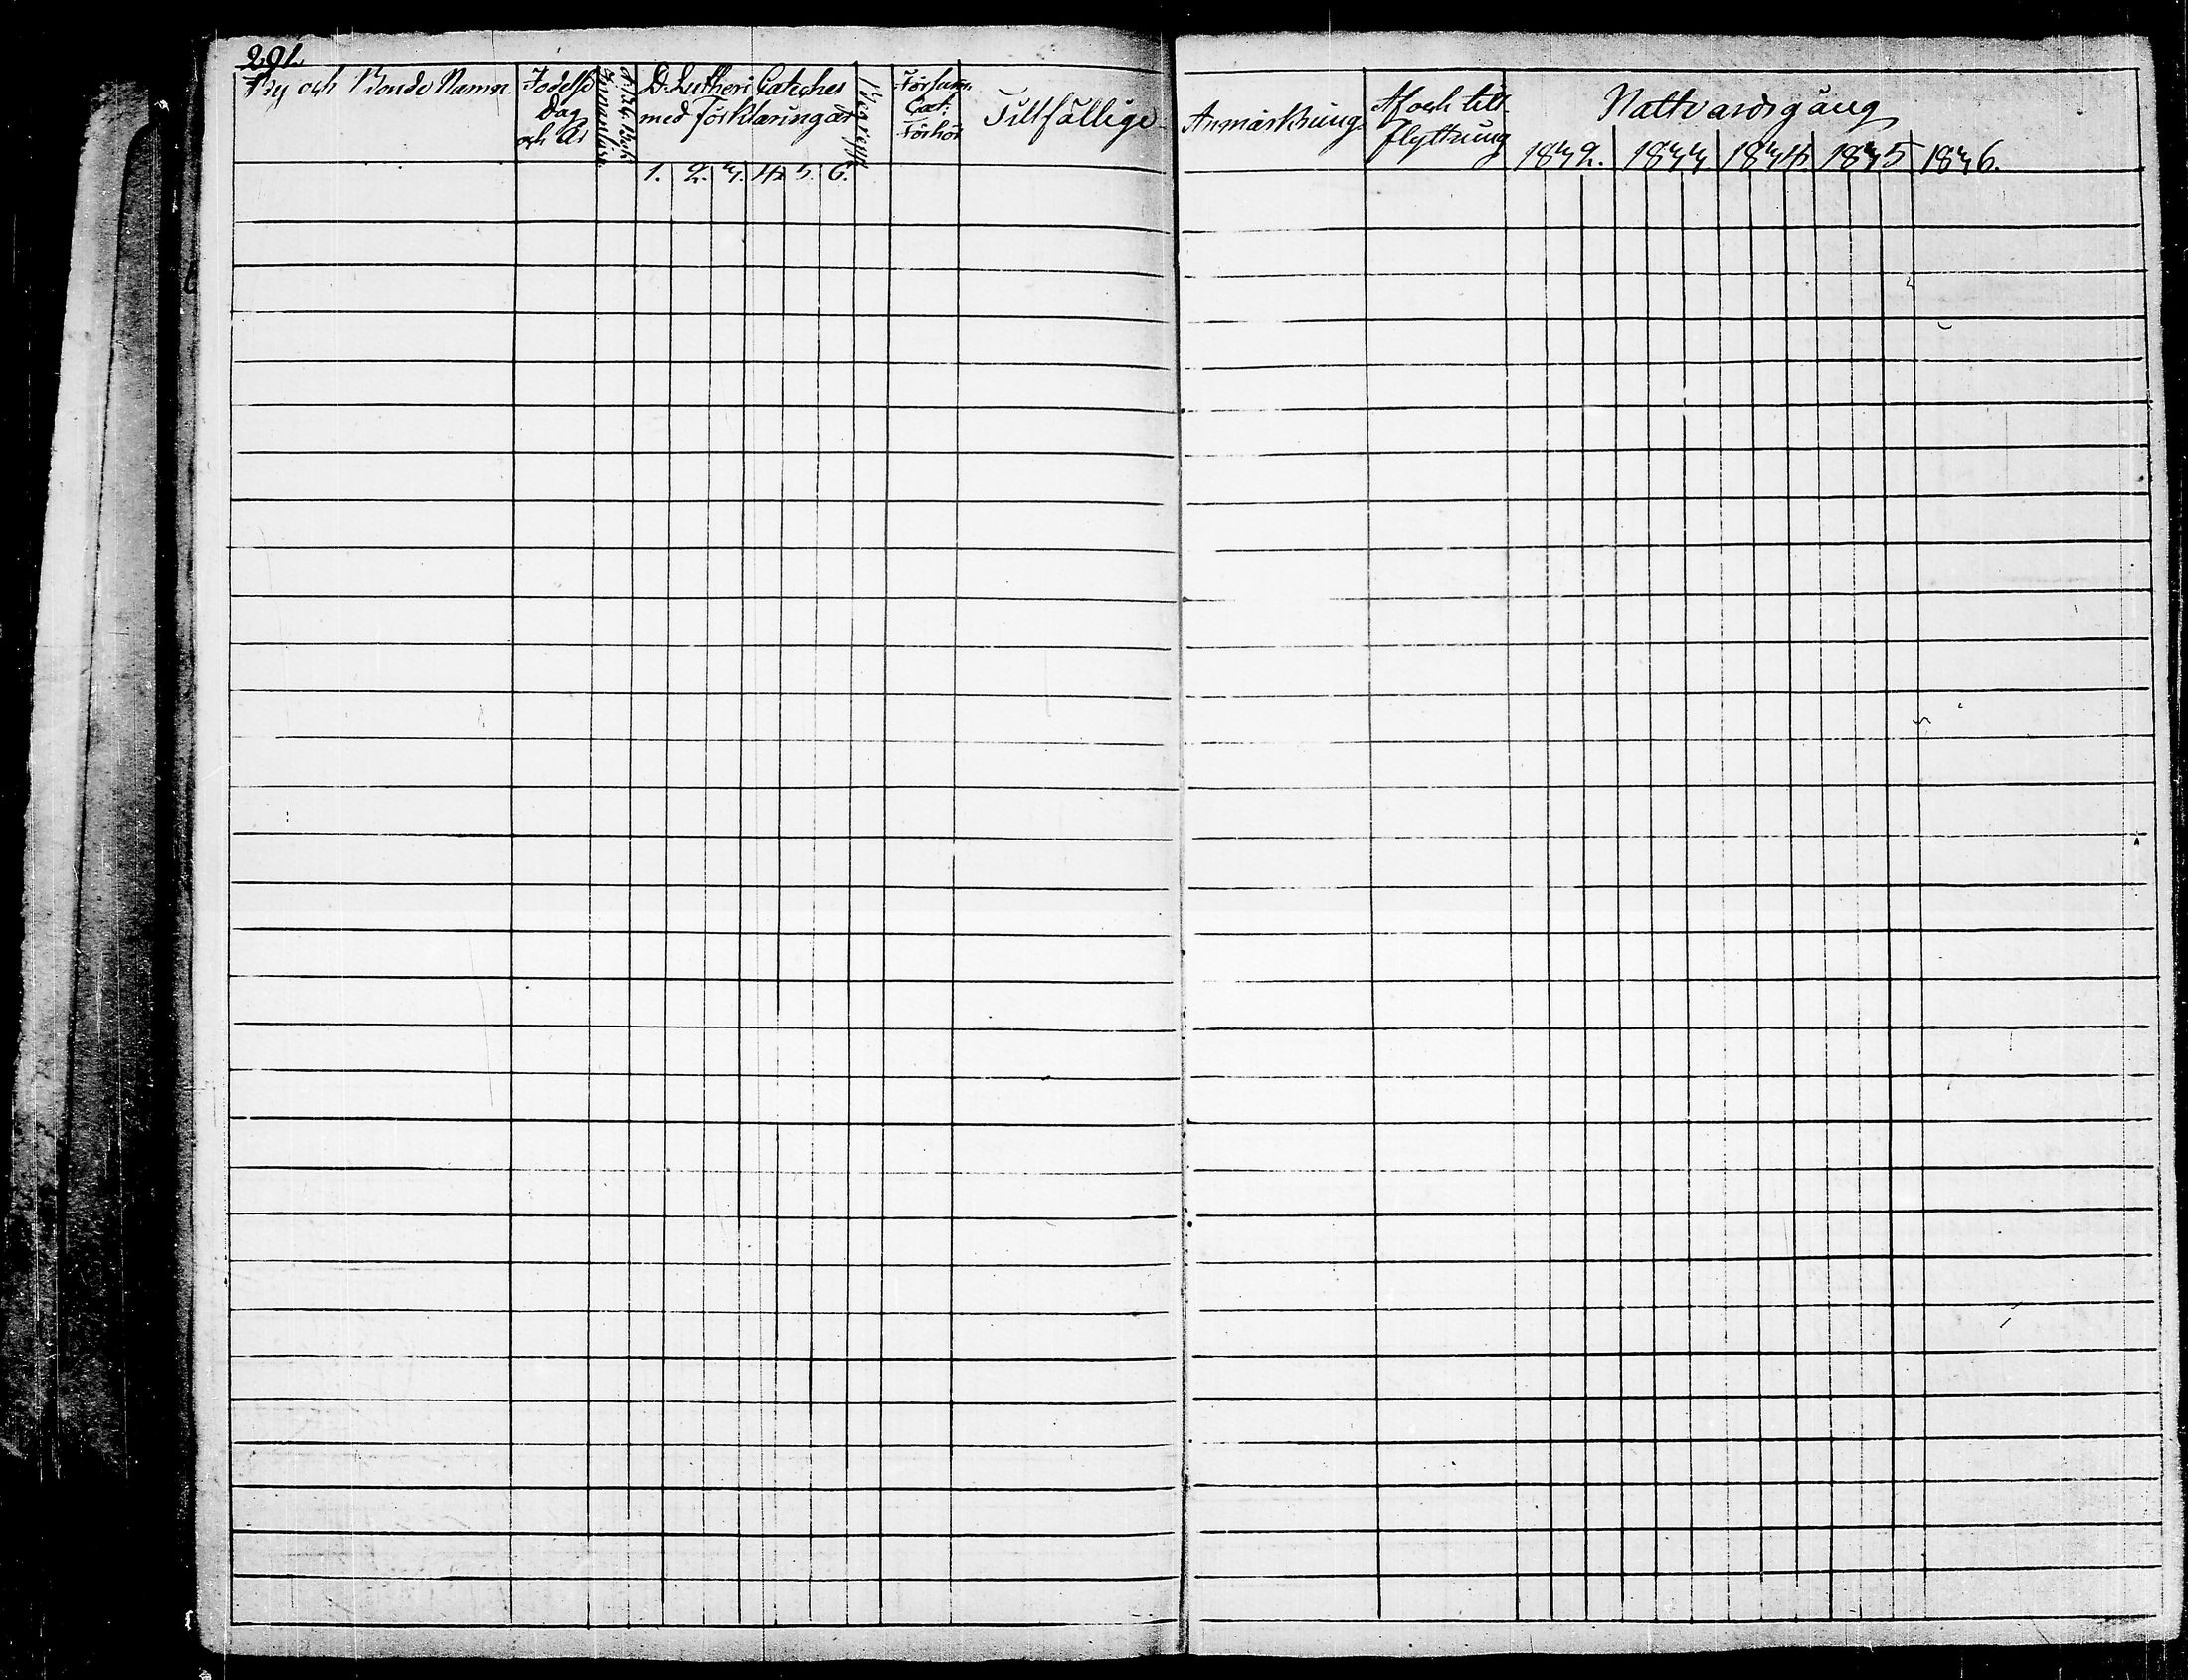 201
By och Bonde Namn.
Födelse
Dag
och År
Innanläsn.
A.B.C. Bok
D. Lutheri Cateches
med Förklaringar
1. 2. 3. 4. 5. 6.
Begrepp
Försum.
Cat.
Förhör
Tillfällige
Anmärkning
Af och till
flyttning
Nattvardsgång
1832. 1833 1834. 1835 1836.